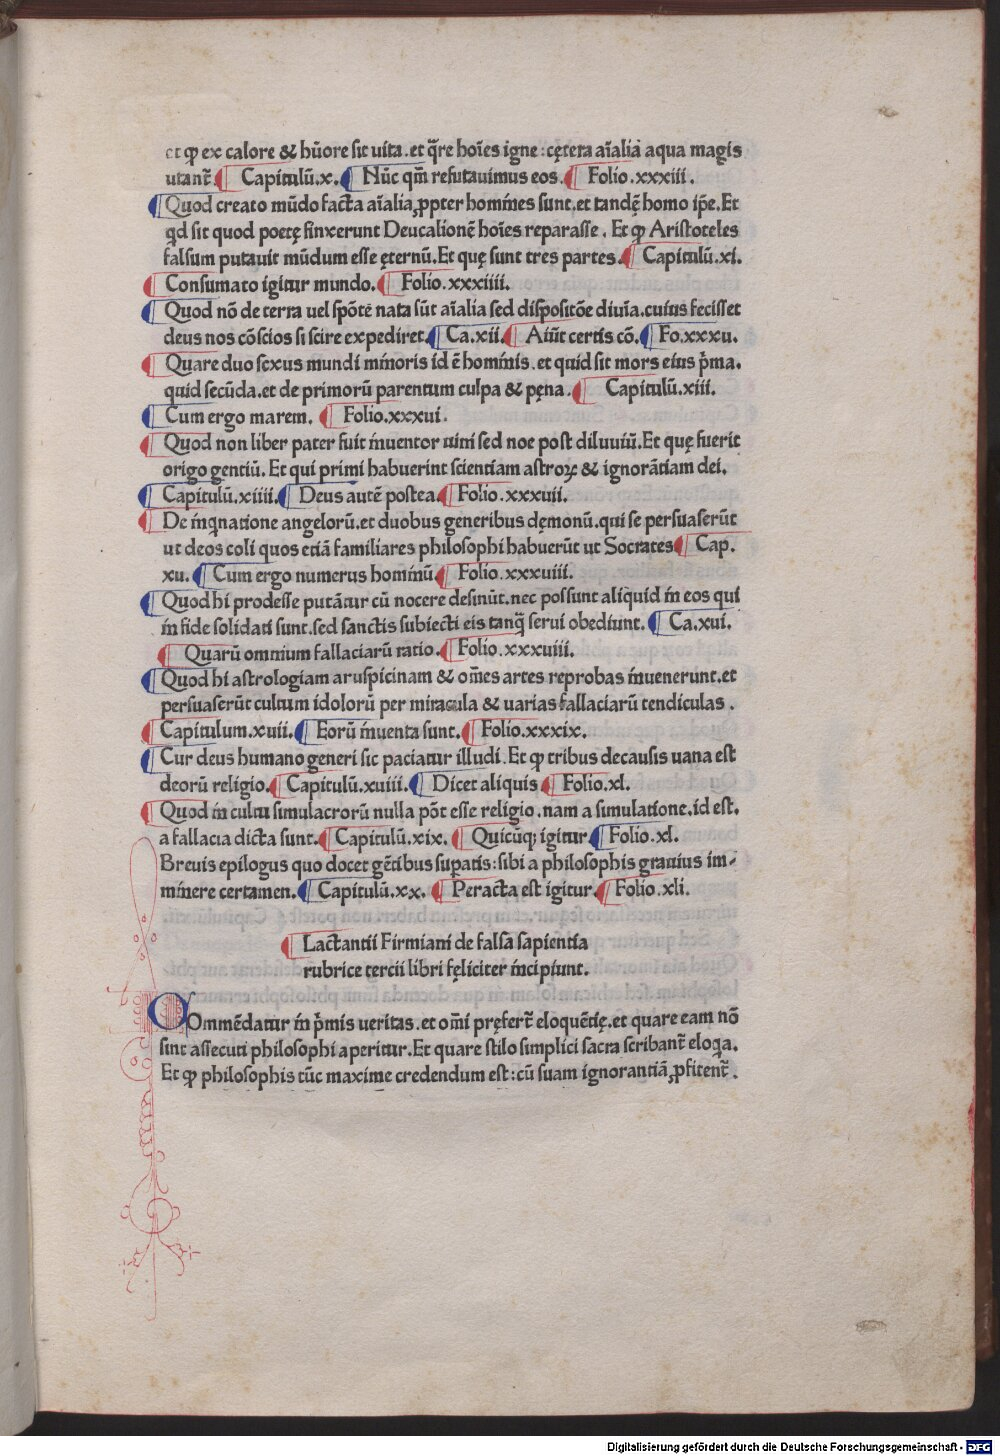 et ꝙ ex calore & hūore sit uita.et q̄re hoīes igne:cętera aīalia aqua magis
utant̄. Capitulū.x. Nūc qm̄ refutauimus eos. Folio.xxxiii.
Quod creato mūdo facta aīalia ꝓpter homines sunt.et tandē homo ip̄e.Et
qd sit quod poetę finxerunt Deucalionē hoīes reparasse. Et ꝙ Aristoteles
falsum putauit mūdum esse ęternū.Et quę sunt tres partes. Capitulū.xi.
Consumato igitur mundo. Folio.xxxiiii.
Quod nō de terra uel spōte nata sūt aīalia sed dispositōe diuīa.cuius fecisset
deus nos cōscios si scire expediret. Ca.xii. Aiūt certis cō. Fo.xxxu.
Quare duo sexus mundi minoris id ē hominis.et quid sit mors eius p̄ma.
quid secūda.et de primorū parentum culpa & pęna. Capitulū.xiii.
Cum ergo marem. Folio.xxxui.
Quod non liber pater fuit inuentor uini sed noe post diluuiū.Et quę fuerit
origo gentiū. Et qui primi habuerint scientiam astroꝝ & ignorātiam dei.
Capitulū.xiiii. Deus autē postea. Folio.xxxuii.
De inqnatione angelorū.et duobus generibus dęmonū.qui se persuaserūt
ut deos coli quos etiā familiares philosophi habuerūt ut Socrates Cap.
xu. Cum ergo numerus hominū. Folio.xxxuiii.
Quod hi prodesse putātur cū nocere desinūt.nec possunt aliquid in eos qui
in fide solidati sunt.sed sanctis subiecti eis tanq̄ serui obediunt. Ca.xui.
Quarū omnium fallaciarū ratio. Folio.xxxuiii.
Quod hi astrologiam aruspicinam & om̄es artes reprobas inuenerunt.et
persuaserūt cultum idolorū per miracula & uarias fallaciarū tendiculas.
Capitulum.xuii. Eorū inuenta sunt. Folio.xxxix.
Cur deus humano generi sic paciatur illudi.Et ꝙ tribus decausis uana est
deorū religio. Capitulū.xuiii. Dicet aliquis Folio.xl.
Quod in cultu simulacrorū nulla pōt esse religio.nam a simulatione.id est.
a fallacia dicta sunt. Capitulū.xix. Quicūq; igitur Folio.xl.
Breuis epilogus quo docet gētibus suꝑatis:sibi a philosophis grauius im-
minere certamen. Capitulū.xx. Peracta est igitur Folio.xli.
Lactantii Firmiani de falsa sapientia
rubrice tercii libri fęliciter incipiunt.
COmmēdatur in p̄mis ueritas.et om̄i pręfert̄ eloquētię.et quare eam nō
sint assecuti philosophi aperitur.Et quare stilo simplici sacra scribant̄ eloqa.
Et ꝙ philosophis tūc maxime credendum est:cū suam ignorantiā ꝓfitent̄.
Digitalisierung gefördert durch die Deutsche Forschungsgemeinschaft - DFG